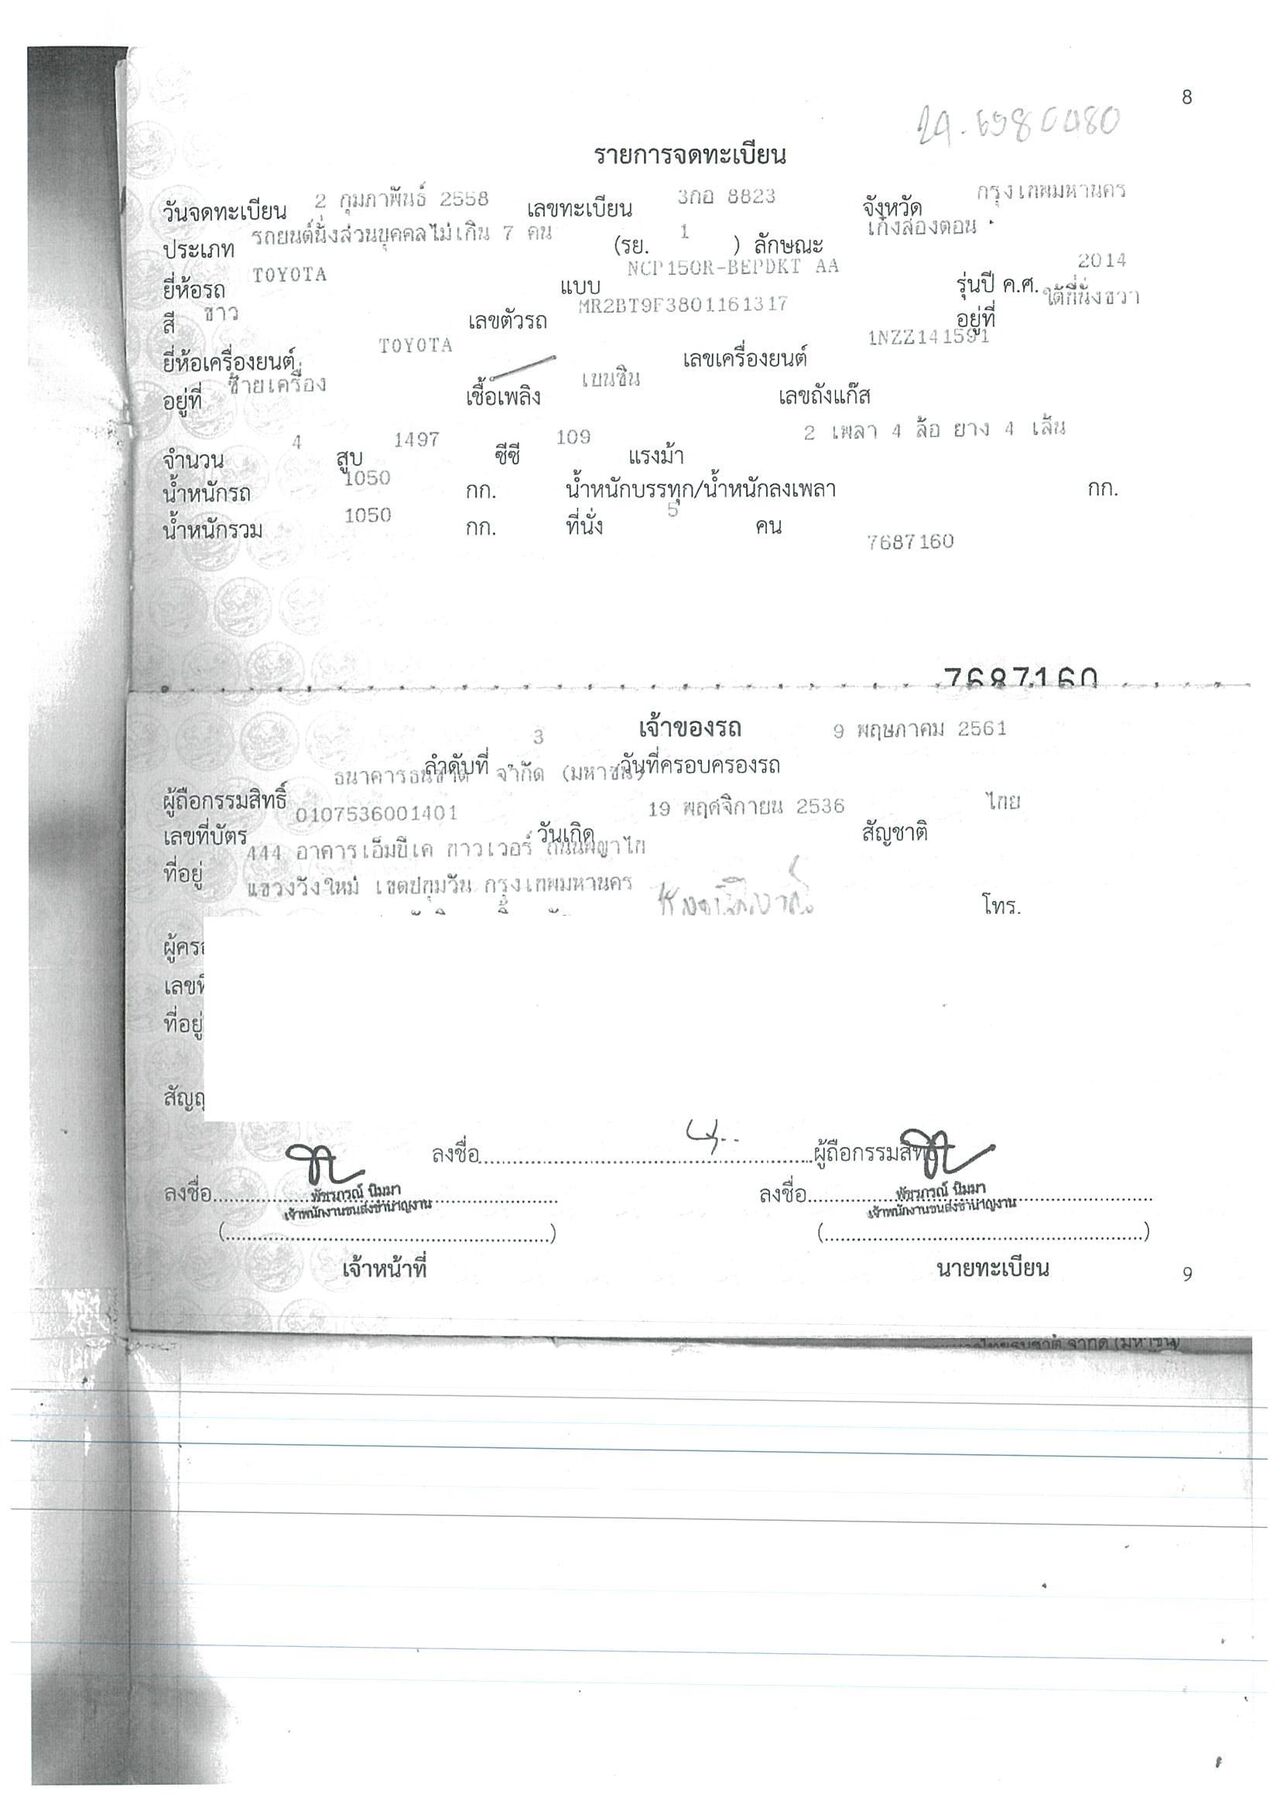 8
รายการจดทะเบียน
วันจดทะเบียน 2 กุมภาพันธ์ 2558 เลขทะเบียน 3กอ 8823 จังหวัด กรุงเทพมหานคร
ประเภท รถยนต์นั่งส่วนบุคคลไม่เกิน 7 คน (รย. 1 ) ลักษณะ เก๋งสองตอน
ยี่ห้อรถ TOYOTA แบบ NCP150R-BEPDKT AA รุ่นปี ค.ศ. 2014
สี ขาว เลขตัวรถ MR2BT9F3801161317 อยู่ที่ ใต้ที่นั่งขวา
ยี่ห้อเครื่องยนต์ TOYOTA เลขเครื่องยนต์ 1NZZ141591
อยู่ที่ ซ้ายเครื่อง เชื้อเพลิง เบนซิน เลขถังแก๊ส
จำนวน 4 สูบ 1497 ซีซี 109 แรงม้า 2 เพลา 4 ล้อ ยาง 4 เส้น
น้ำหนักรถ 1050 กก. น้ำหนักบรรทุก/น้ำหนักลงเพลา กก.
น้ำหนักรวม 1050 กก. ที่นั่ง 5 คน
7687160
7687160
เจ้าของรถ
ลำดับที่ 3 วันที่ครอบครองรถ 9 พฤษภาคม 2561
ผู้ถือกรรมสิทธิ์ ธนาคารธนชาต จำกัด (มหาชน)
เลขที่บัตร 0107536001401 วันเกิด 19 พฤศจิกายน 2536 สัญชาติ ไทย
ที่อยู่ 444 อาคารเอ็มบีเค ทาวเวอร์ ถนนพญาไท
แขวงวังใหม่ เขตปทุมวัน กรุงเทพมหานคร โทร.
เลขที่
ที่อยู่
ลงชื่อ ผู้ถือกรรมสิทธิ์
ลงชื่อ พัชรภรณ์ นิมมา ลงชื่อ พัชรภรณ์ นิมมา
เจ้าพนักงานขนส่งชำนาญงาน เจ้าพนักงานขนส่งชำนาญงาน
เจ้าหน้าที่ นายทะเบียน
9